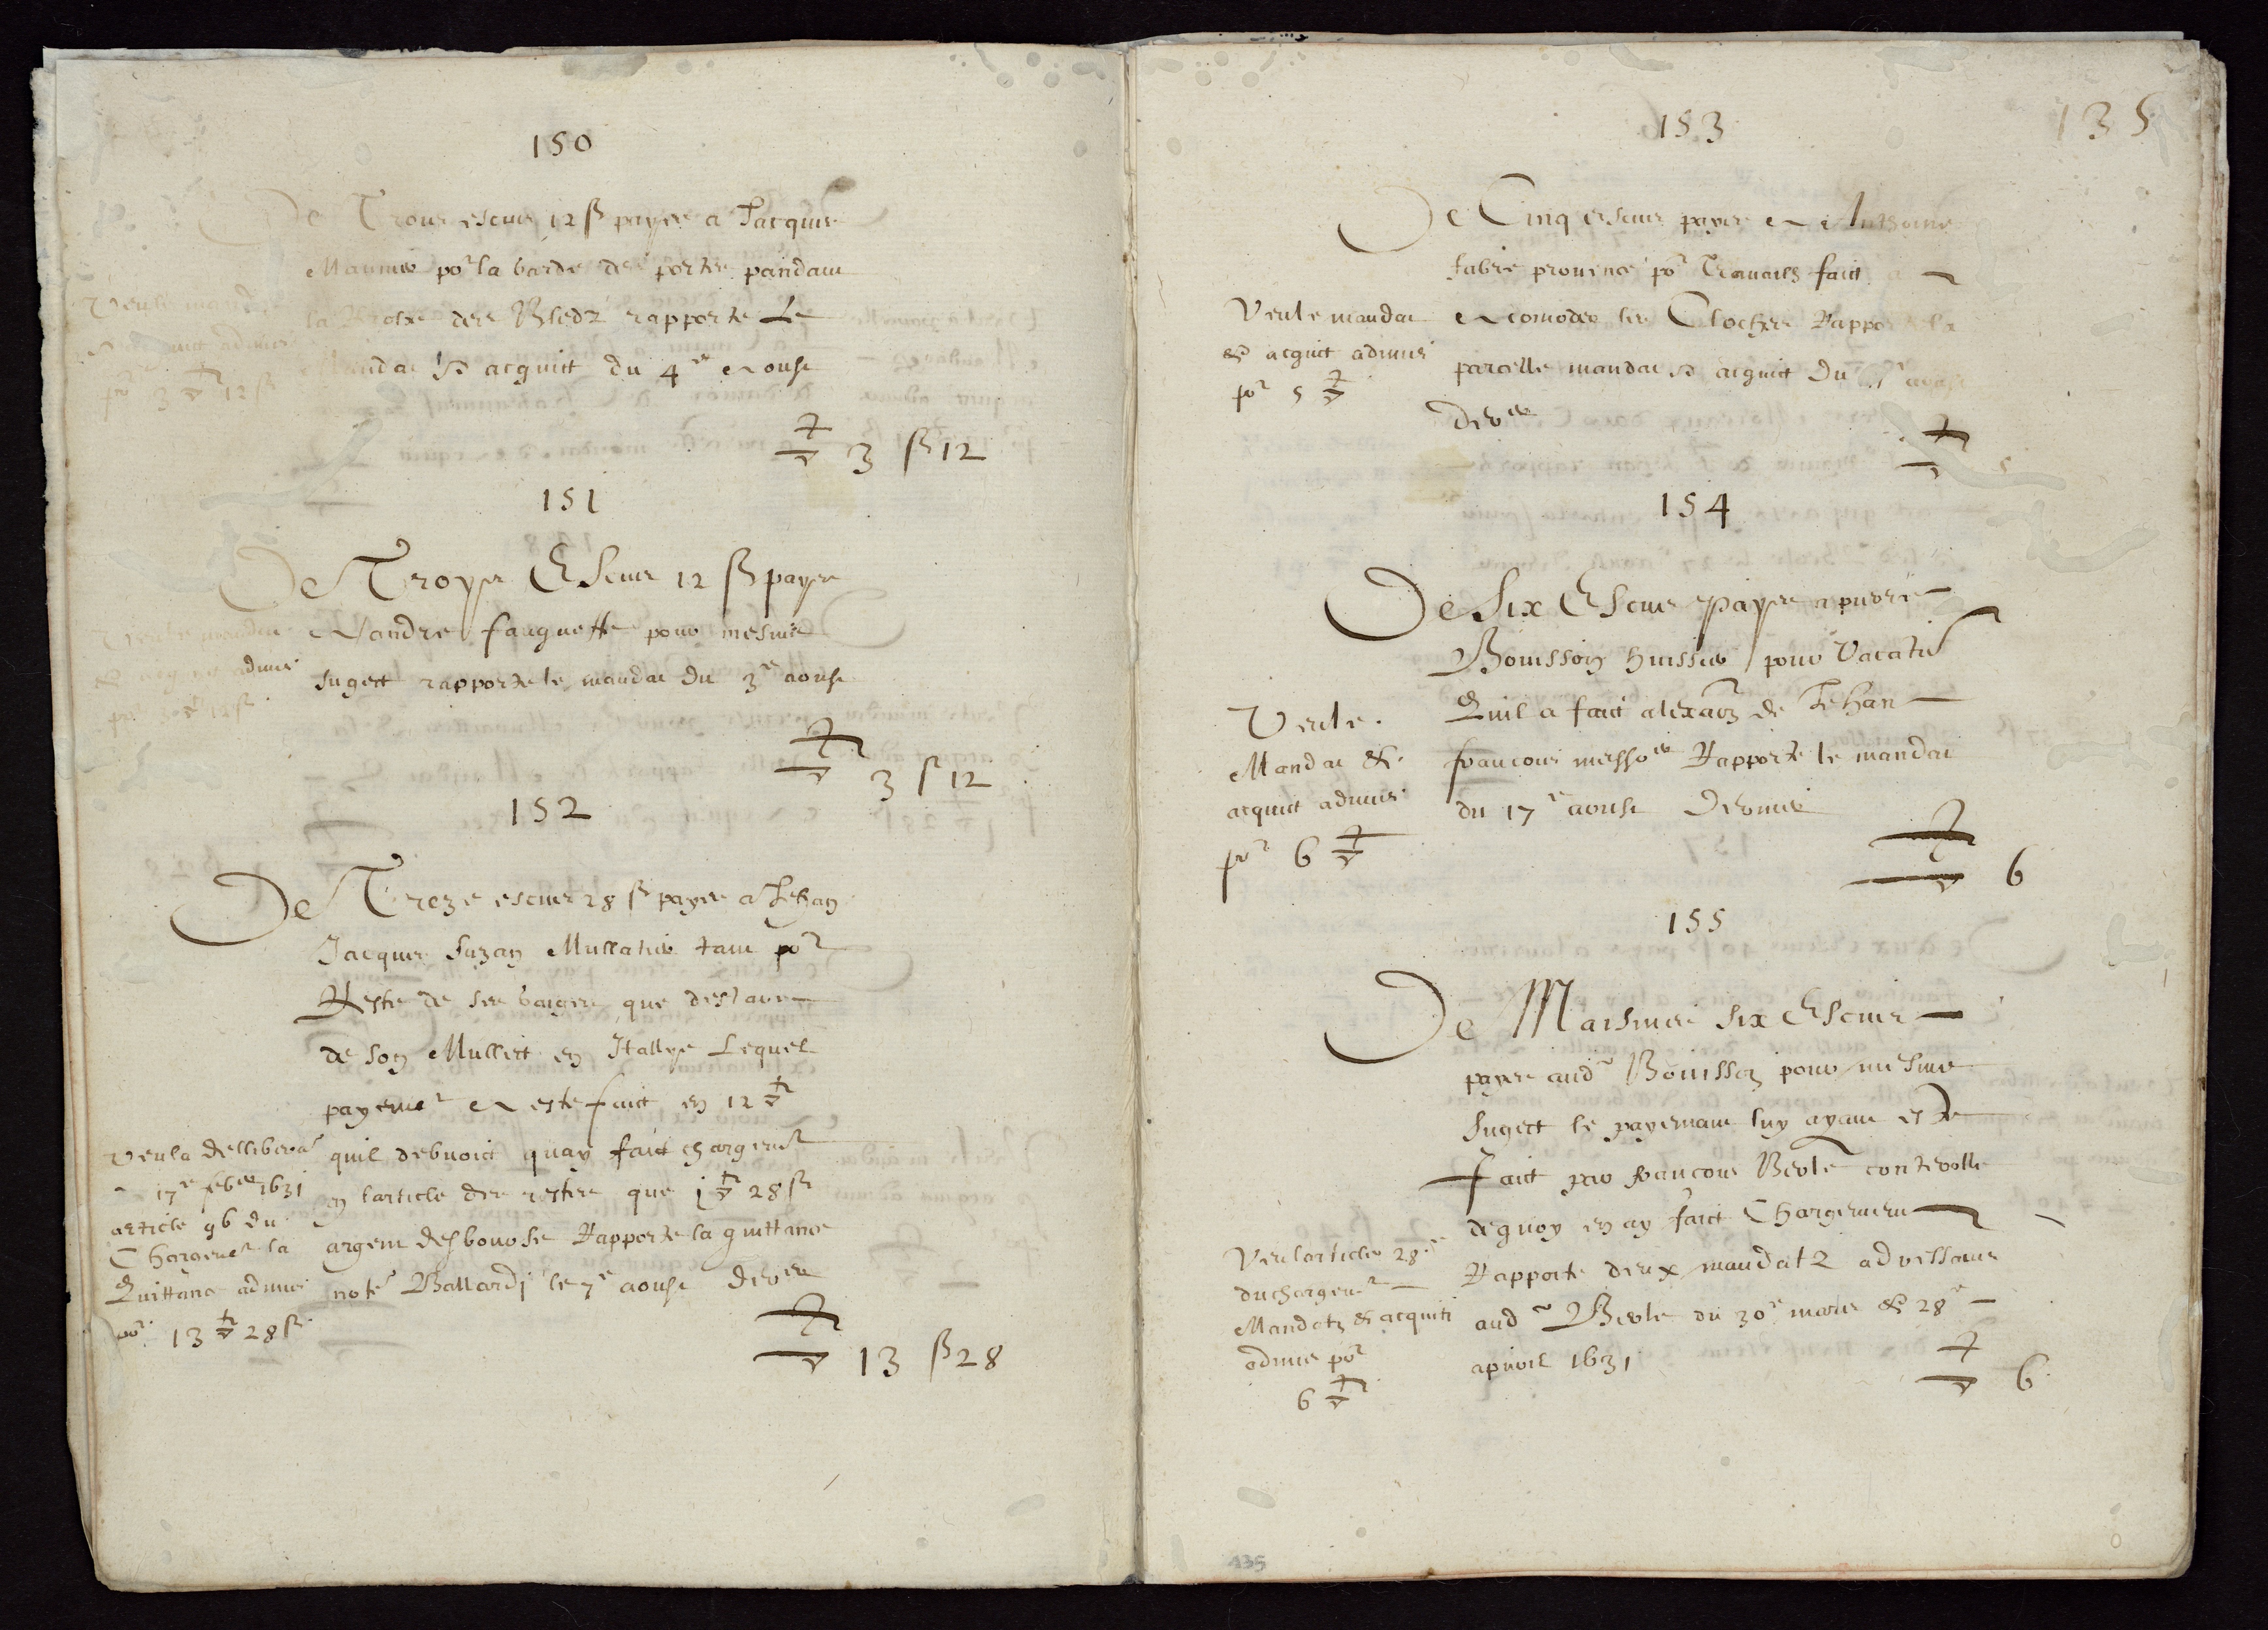 150
De Trois escus 12 ß payés a Jacques
Maunier po^r la garde des portes pandant
la des Bledz rapporte Le
Mandat & acquict du 4^e aoust
3 ß 12
Veu le mandat
acquict admis
po^r 3 12 ß
151
De Troys Escus 12 ß payés
a andre fauguette pour mesme
sugect rapporte le mandat du 3^e aoust
3 ß 12
Veu le mandat
& acquict admis
po^r 3 12 ß
152
De Treze escus 28 ß payés a Jehan
Jacques suzan Mullatier tant po^r
Reste de ses gaiges que des
de son Mullect en Itallye Lequel
payem^t a este faict en 12
quil debvoict quay faict chargem^t
en larticle des restes que 1 28 ß
argent desbourse Rapporte la quittance
note Ballardj le 7^e aoust der^er
13 ß 28
veu la dellibera^on
17^e feb^er 1631
article 96 du
Chargem^t la
Quittance admis
po^r 13 28 ß
153
135
De Cinq escus payés a Anthoine
fabre po^r Travails faict a
acomoder les Cloches Rapporte la
parcelle mandat & acquict du aoust
der^er
5
Veu le mandat
& acquict admis
po^r 5
154
De Six Escus payés a pierre
Bouisson huissier pour Vacation
Quil a faict de Jehan
francois Rapporte le mandat
du 17^e aoust dernier
6
Veu le
Mandat &
acquict admis
po^r 6
155
De Mesmes six Escus
payés aud^t Bouisson pour mesme
sugect le payemant luy ayant este
faict par francois Beole controlle
de quoy en ay faict Chargement
Rapporte deux mandatz adressants
aud^t Beole du 30^e mars & 28^e
apvril 1631
6
Veu larticle 28^e
du chargem^t
Mandatz & acquits
admis po^r
6
135